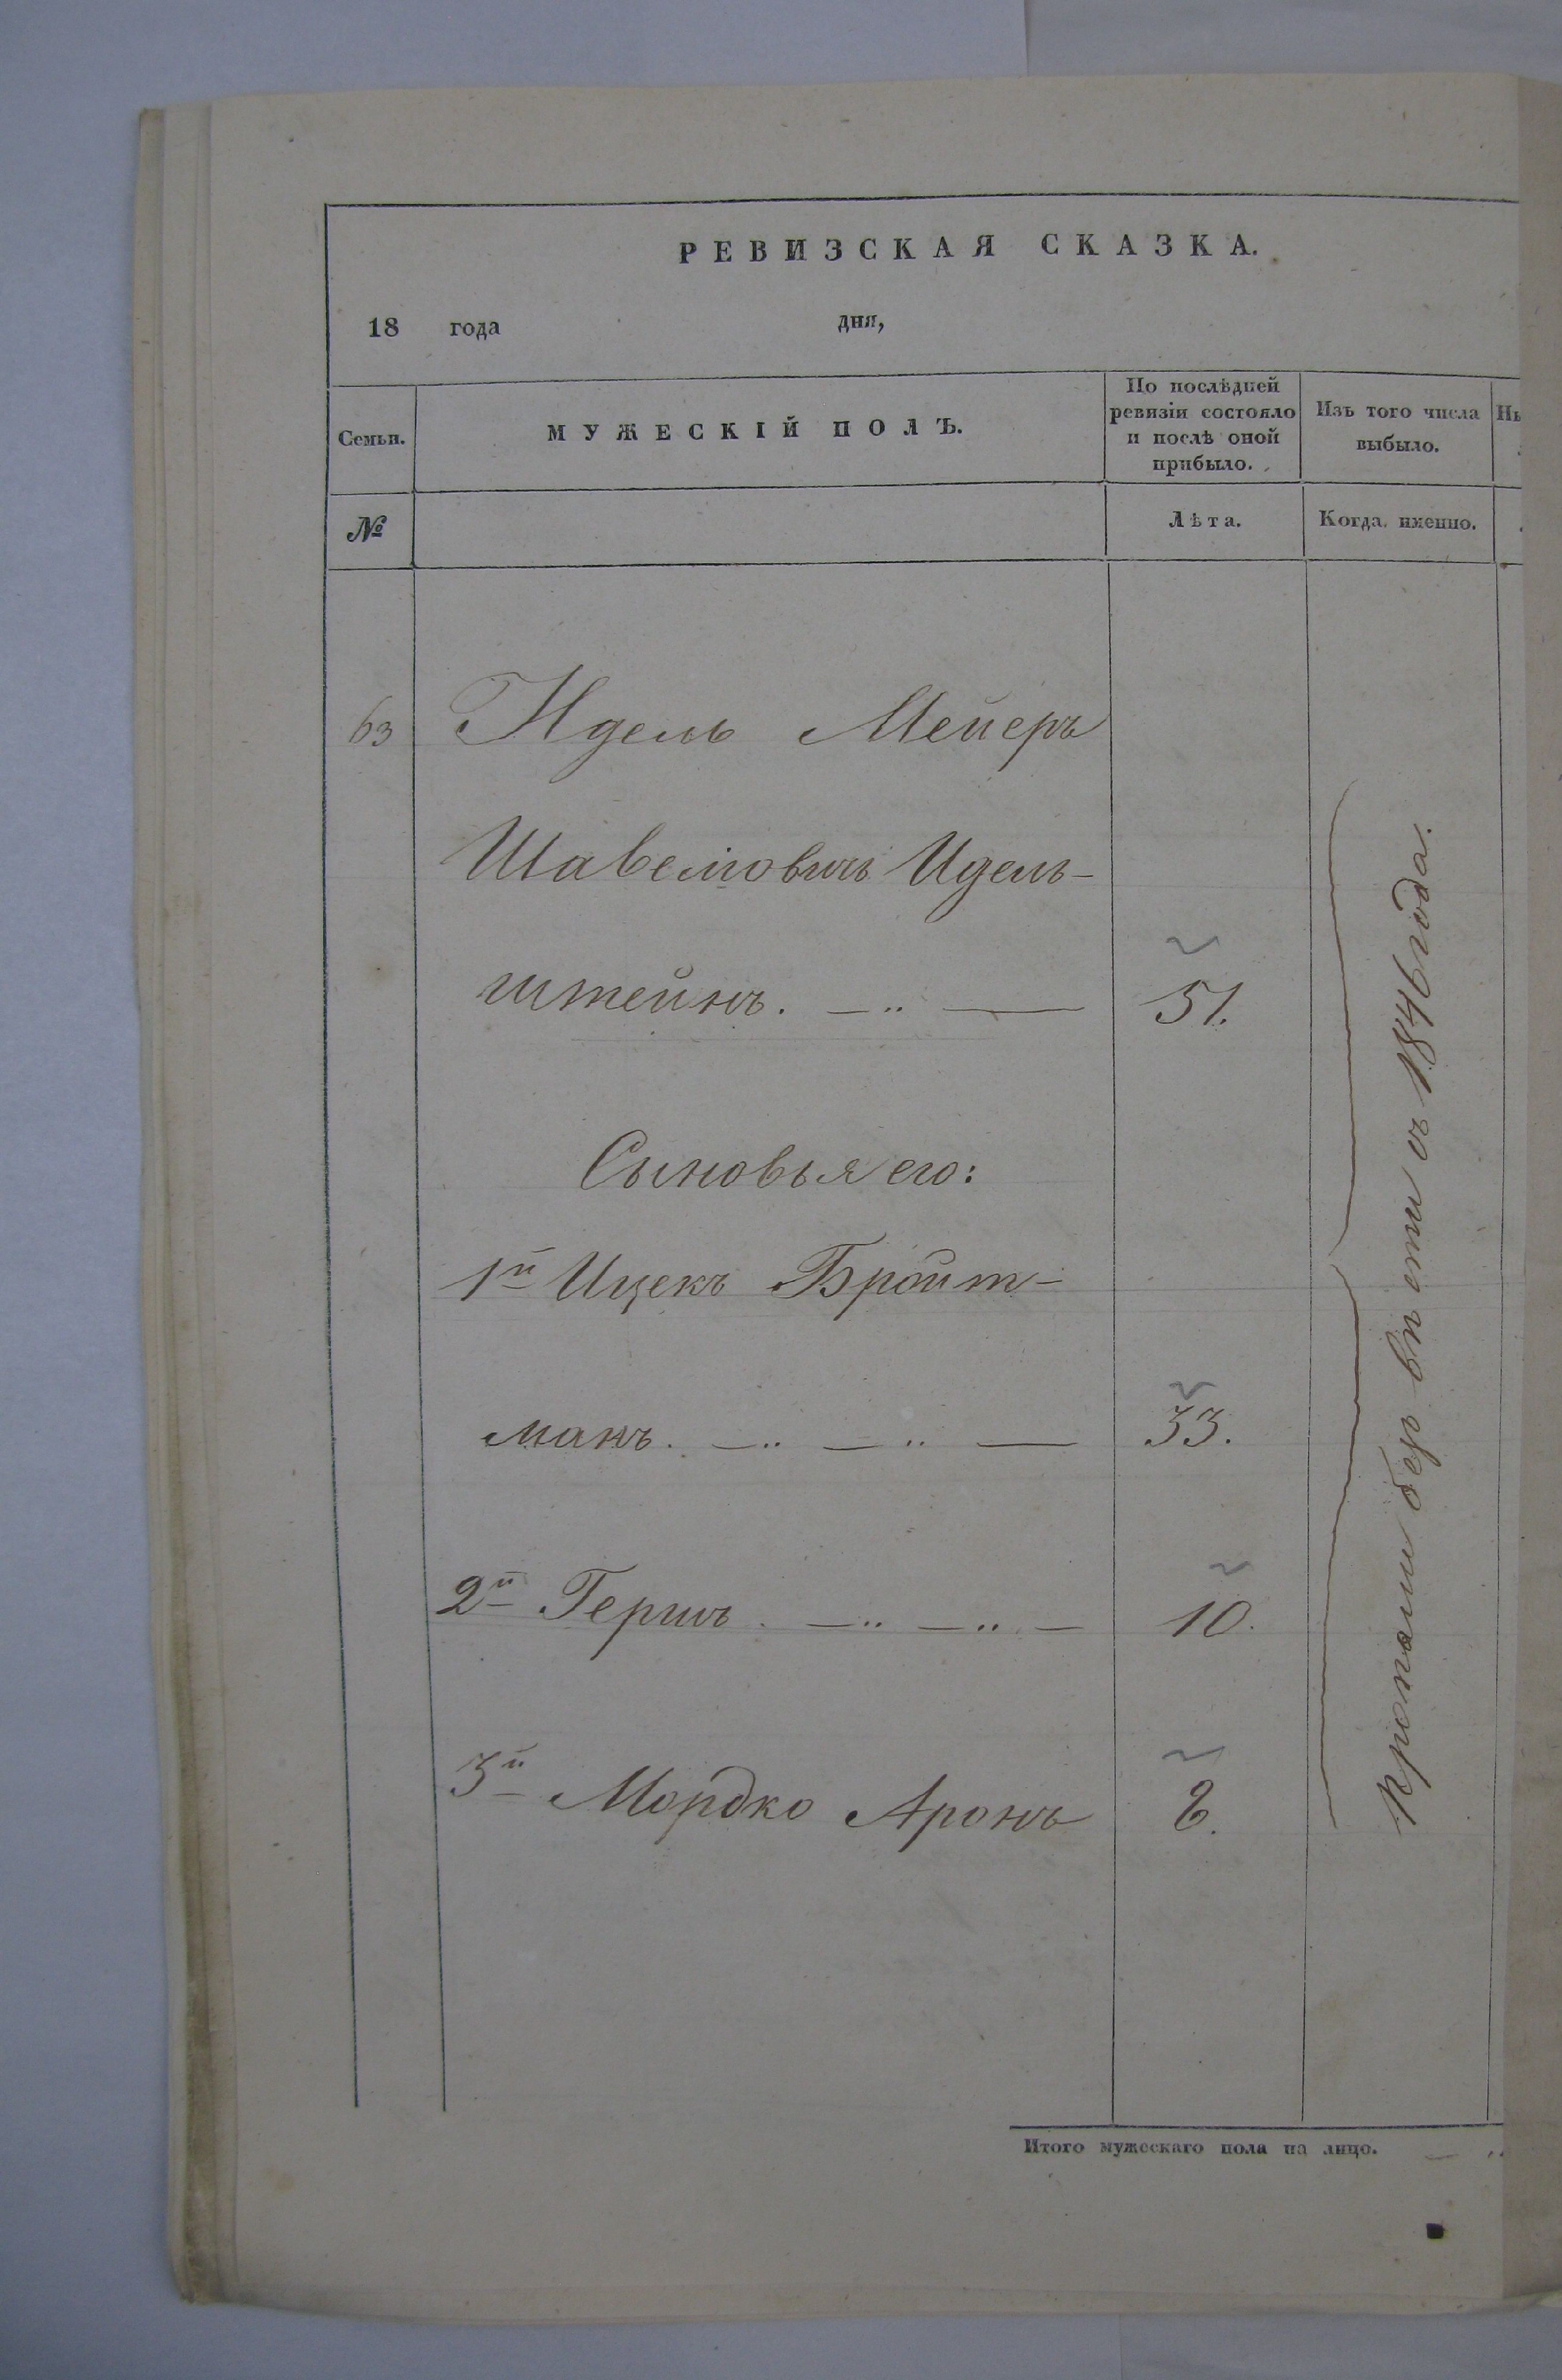 РЕВИЗСКАЯ СКАЗКА.
18 года дня,
Семьи.
МУЖЕСКІЙ ПОЛЪ.
По послѣдней
ревизіи состояло
и послѣ оной
прибыло.
Изъ того числа
выбыло.
№
Лѣта.
Когда именно.
63 Идель Мейеръ
Шавеліовичъ Идель-
штейнъ. 51.
Сыновья его:
1й Ицекъ Бройт-
манъ. 33.
2й Гершъ 10.
3й Мордко Аронъ
пропали безъ вѣсти съ 1846 года.
Итого мужескаго пола на лицо.